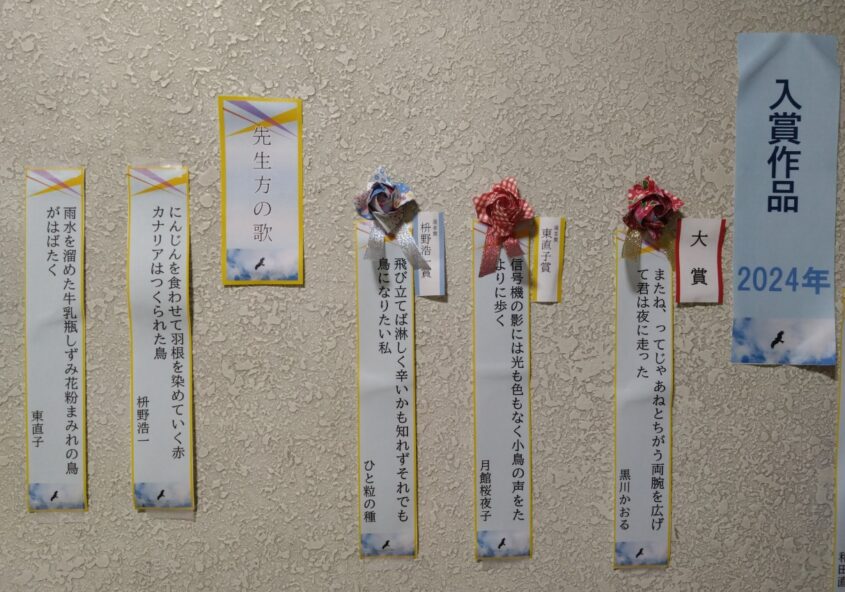 入賞作品
2024年
大賞
またね、ってじゃあねとちがう両腕を広げ
て君は夜に走った
黒川かおる
東直子賞
信号機の影には光も色もなく小鳥の声をた
よりに歩く
月館桜夜子
枡野浩一賞
飛び立てば淋しく辛いかも知れずそれでも
鳥になりたい私
ひと粒の種
先生方の歌
にんじんを食わせて羽根を染めていく赤
カナリアはつくられた鳥
枡野浩一
雨水を溜めた牛乳瓶しずみ花粉まみれの鳥
がはばたく
東直子